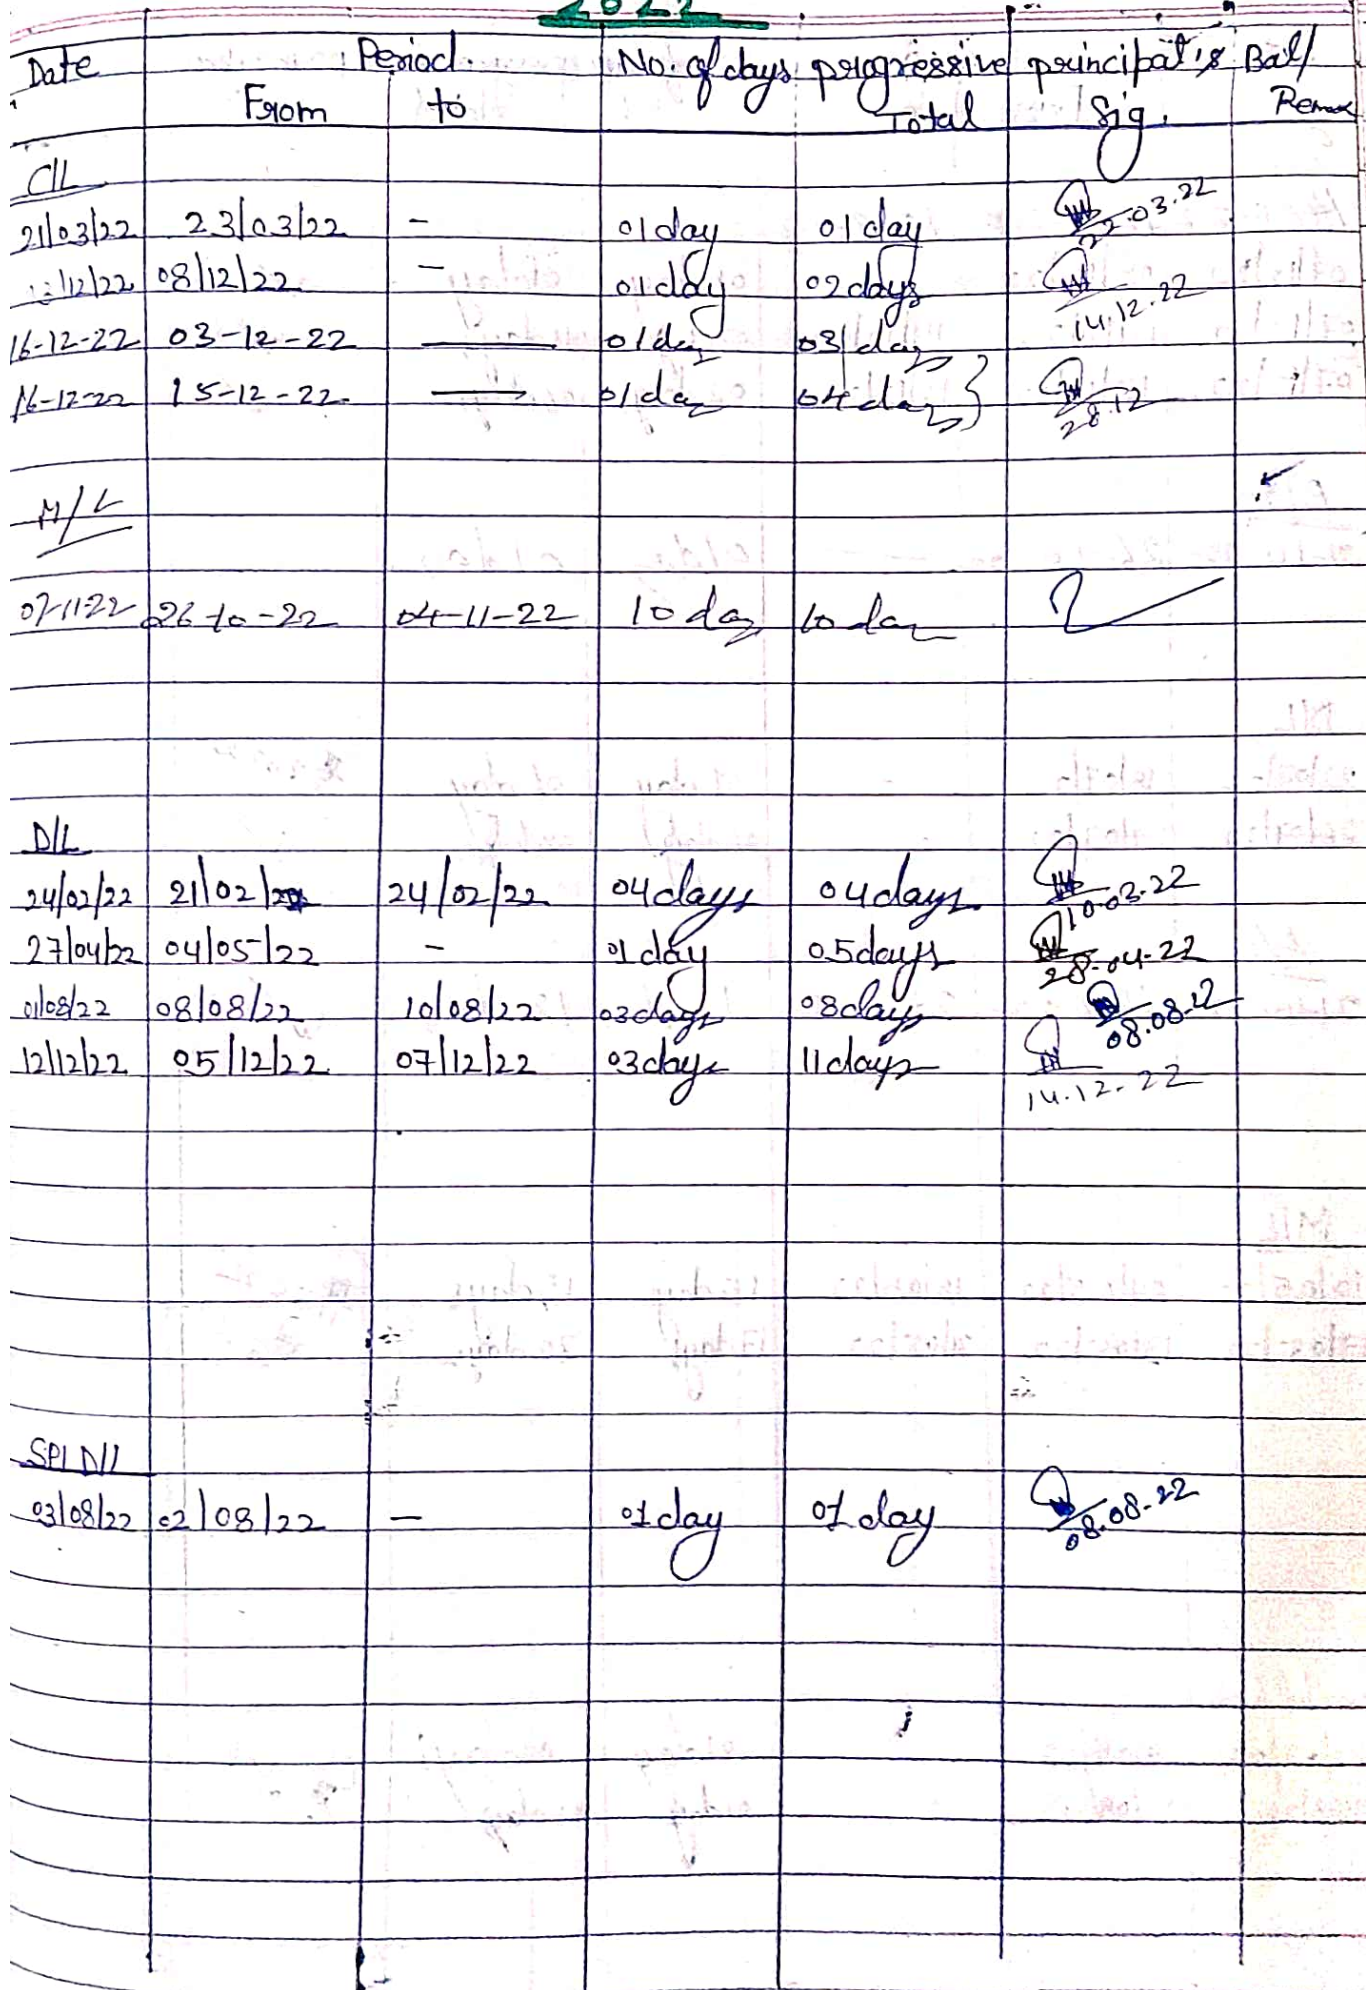 2022
Date Period No. of days progressive principal's Bal/
From to Total Sig. Remark
C/L
21/03/22 23/03/22 - 01 day 01 day 22.03.22
12/22 08/12/22 - 01 day 02 days 14.12.22
16-12-22 03-12-22 — 01 day 03 days
16-12-22 15-12-22 — 01 day 04 days } 28.12
M/L
07-11-22 26-10-22 04-11-22 10 day 10 day
D/L
24/02/22 21/02/22 24/02/22 04 days 04 days 10.03.22
27/04/22 04/05/22 - 01 day 05 days 28.04.22
01/08/22 08/08/22 10/08/22 03 days 08 days 08.08.22
12/12/22 05/12/22 07/12/22 03 days 11 days 14.12.22
SPL D/L
03/08/22 02/08/22 - 01 day 01 day 08.08.22